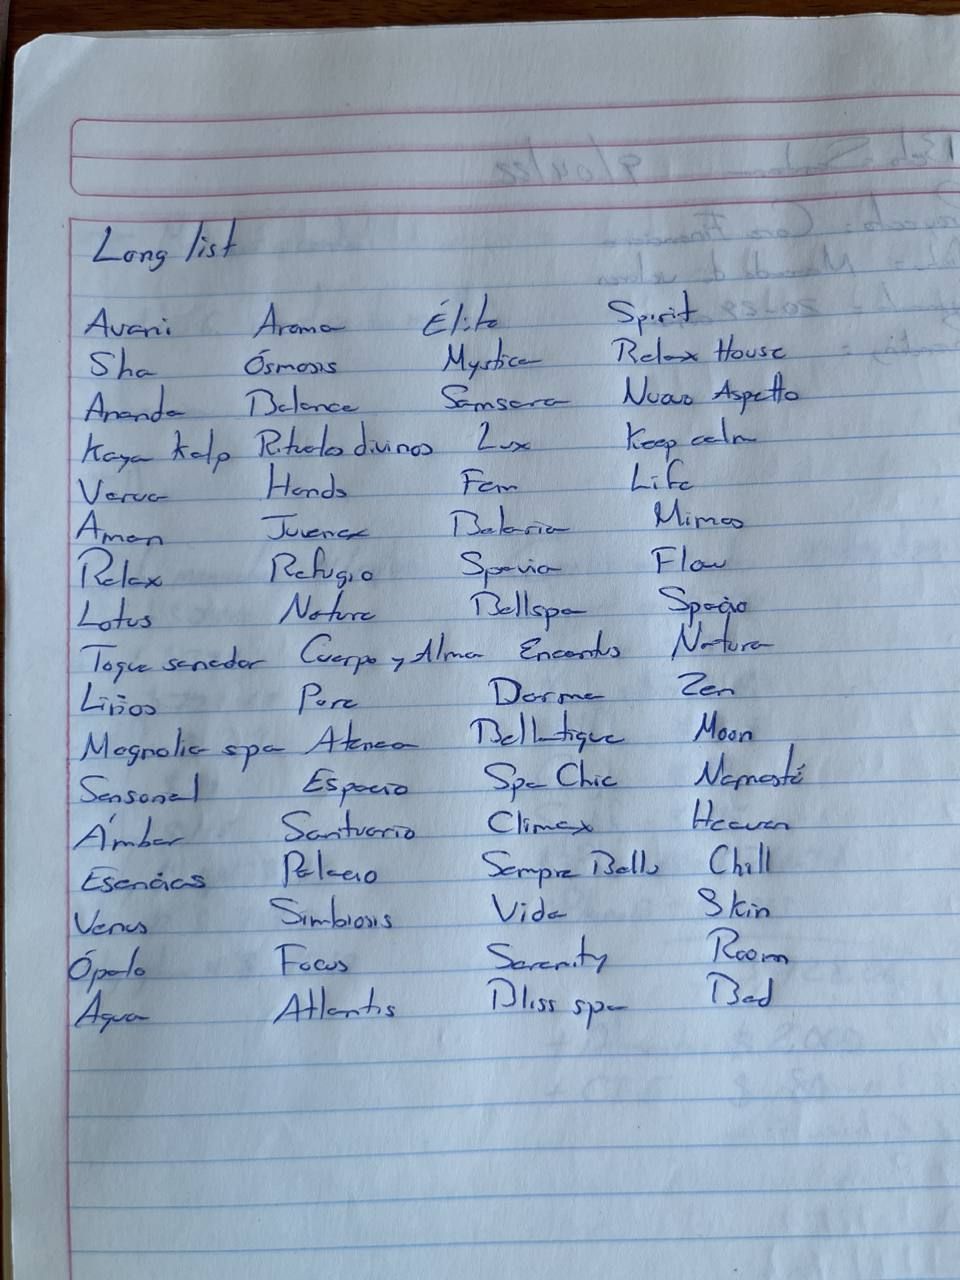 Long list
Avani Aroma Élite Spirit
Sha Ósmosis Mystica Relax House
Ananda Balance Samsara Nuovo Aspetto
Kaya Kalp Rituales divinos Lux Keep calm
Verva Hands Fem Life
Aman Juvenex Balaria Mimos
Relax Refugio Spavia Flow
Lotus Nature Bellspa Spaçio
Toque sanador Cuerpo y Alma Encantus Natura
Lirios Pure Darma Zen
Magnolia spa Atenea Bellutique Moon
Sensorial Espacio Spa Chic Namasté
Ámbar Santuario Climax Heaven
Esencias Palacio Sempre Bella Chill
Venus Simbiosis Vida Skin
Ópalo Focus Serenity Room
Agua Atlantis Bliss spa Bed